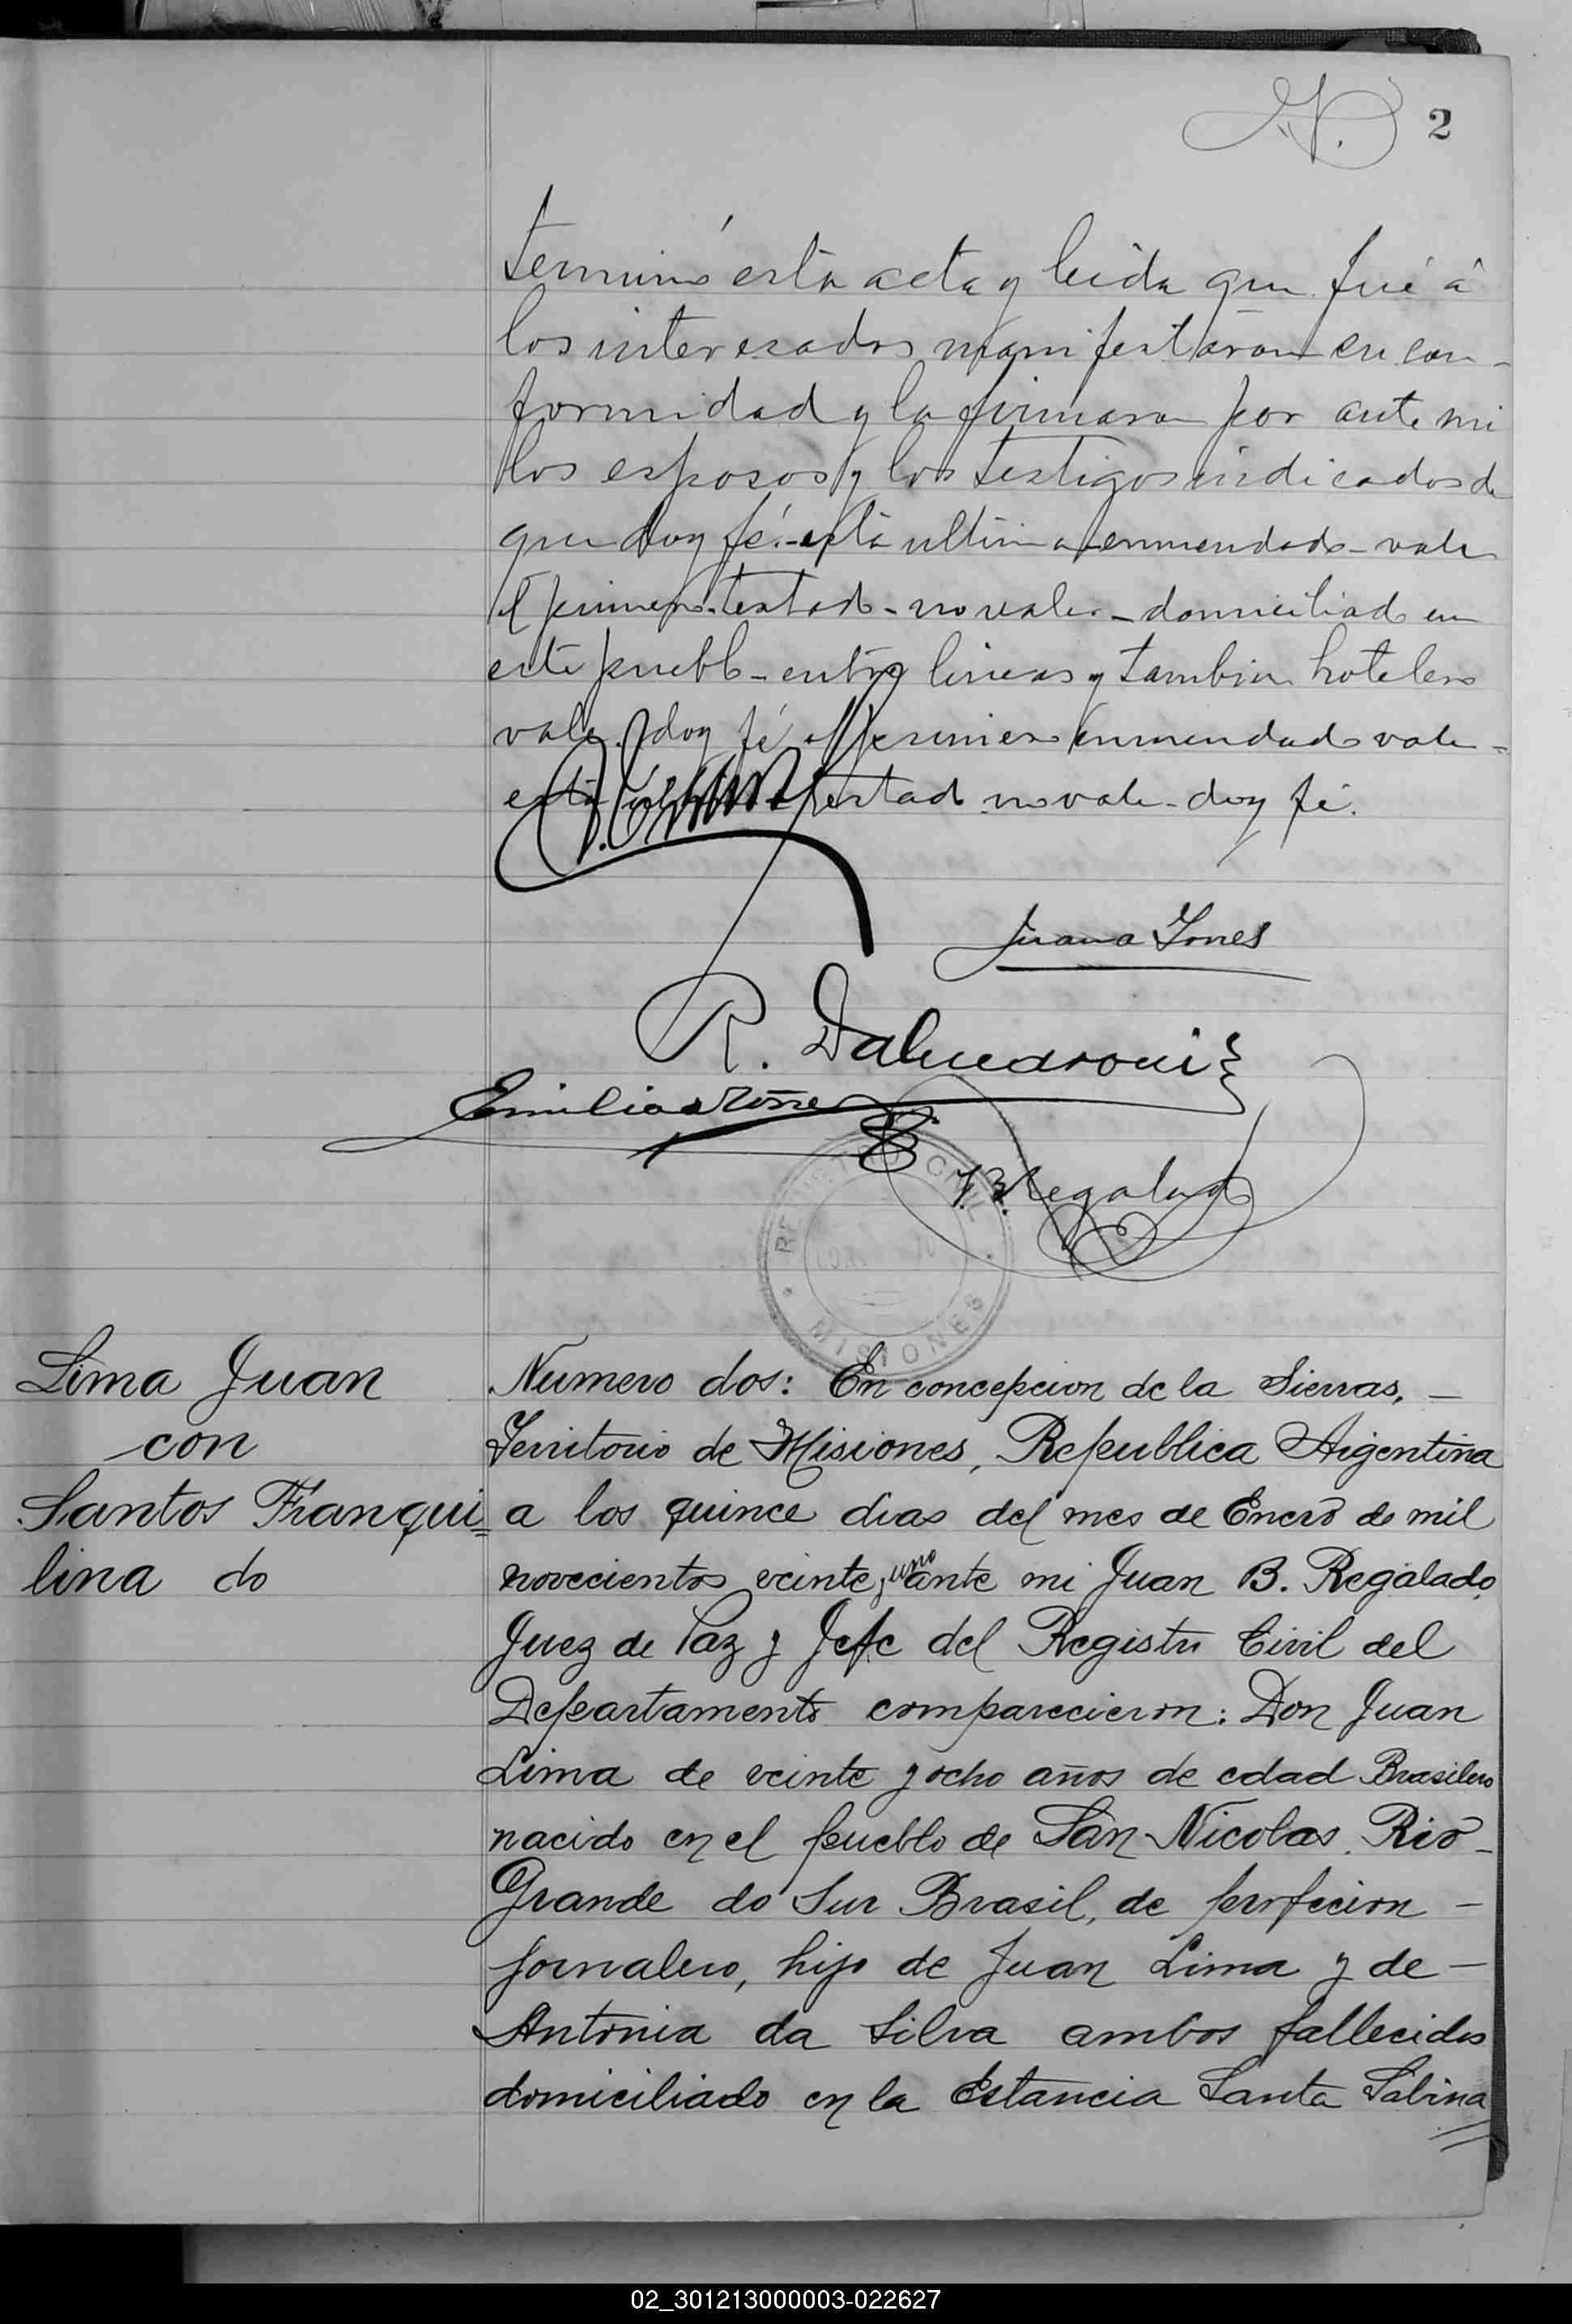 2
terminó esta acta y leida que fué á
los interesados manifestaron su con-
formidad y la firmaron por ante mi
los esposos y los testigos indicados de
que doy fé.-esta ultima-enmendado-vale
el primero-testado-no vale.-domiciliado en
este pueblo-entre lineas y tambien hotelero
vale. doy fé el primero enmendado vale-
esta testado no vale-doy fé.
Juana
R.
Emilio
J.B. Regalado
REGISTRO CIVIL
MISIONES
Lima Juan
con
Santos Franqui=
lina do
Numero dos: En concepcion de la Sierras,—
Territorio de Misiones, Republica Argentina
a los quince dias del mes de Enero de mil
novecientos veinte y uno ante mi Juan B. Regalado,
Juez de Paz y Jefe del Registro Civil del
Departamento comparecieron: Don Juan
Lima de veinte y ocho años de edad Brasilero
nacido en el pueblo de San Nicolas, Rio-
Grande do Sur Brasil, de profecion—
jornalero, hijo de Juan Lima y de—
Antonia da Silva ambos fallecidos
domiciliado en la Estancia Santa Sabina
02_301213000003-022627